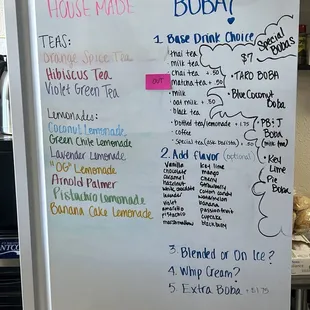 HOUSE MADE
TEAS:
Orange Spice Tea
Hibiscus Tea
Violet Green Tea
Lemonades:
Coconut Lemonade
Green Chile Lemonade
Lavender Lemonade
"OG" Lemonade
Arnold Palmer
Pistachio Lemonade
Banana Cake Lemonade
BOBA!
1. Base Drink Choice
$7
thai tea
milk tea
chai tea + .50
OUT
matcha tea + .50
milk
oat milk + .50
black tea
bottled tea/lemonade + 1.75
coffee
Special tea (ask Barista) + .50
2. Add Flavor (optional)
Vanilla
chocolate
caramel
hazelnut
lavender
violet
amaretto
pistachio
marshmallow
key lime
mango
cherry
strawberry
cotton candy
watermelon
banana
passionfruit
cupcake
blackberry
3. Blended or On Ice?
4. Whip Cream?
5. Extra Boba + $1.75
Special Bobas
• TARO BOBA
• Blue Coconut
Boba
• PB: J
Boba
(milk tea)
• Key
Lime
Pie
Boba